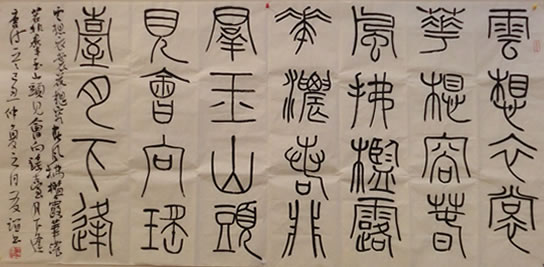 雲想衣裳
華想容春
風拂檻露
華濃若非
羣玉山頭
見會向瑤
臺月下逢
雲想衣裳花想容春風拂檻露華濃
若非羣玉山頭見會向瑤臺月下逢
仲夏之月